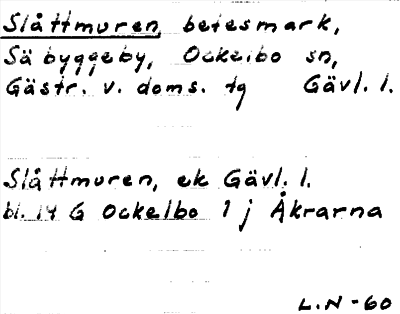 Slåttmuren, betesmark,
Säbyggeby, Ockelbo sn,
Gästr. v. doms. tg Gävl. l.
Slåttmuren, ek Gävl. l.
bl. 14 G Ockelbo 1 j Åkrarna
L.N-60